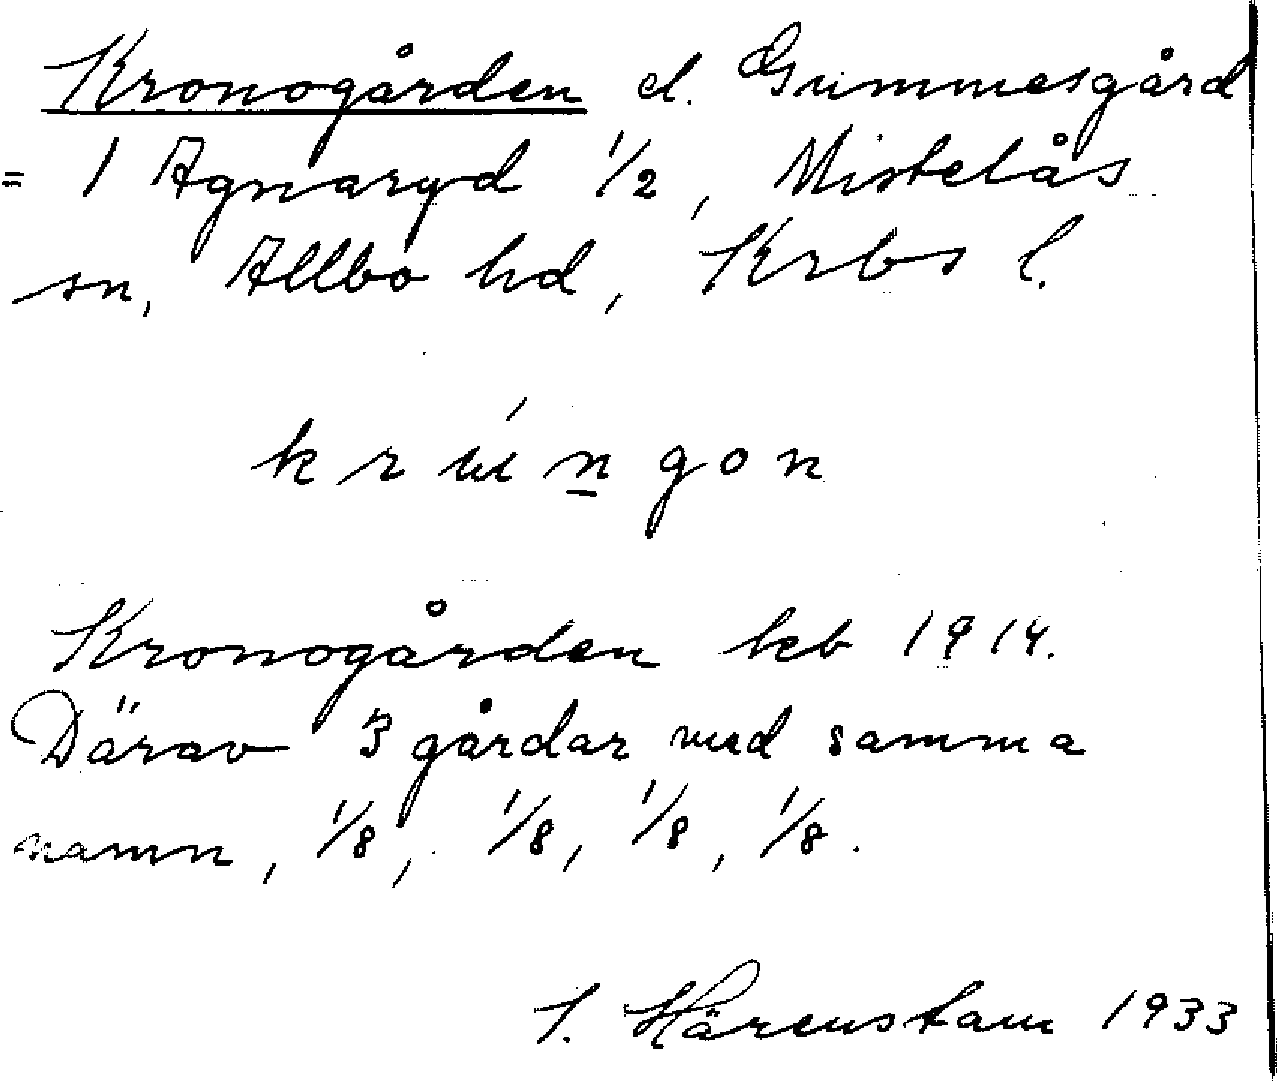 Kronogården el. Gummesgård
= 1 Agnaryd 1/2, Mistelås
sn, Allbo hd, Krbs l.
Kronogården kb 1914.
Därav 3 gårdar med samma
namn, 1/8, 1/8, 1/8, 1/8.
I. Härenstam 1933